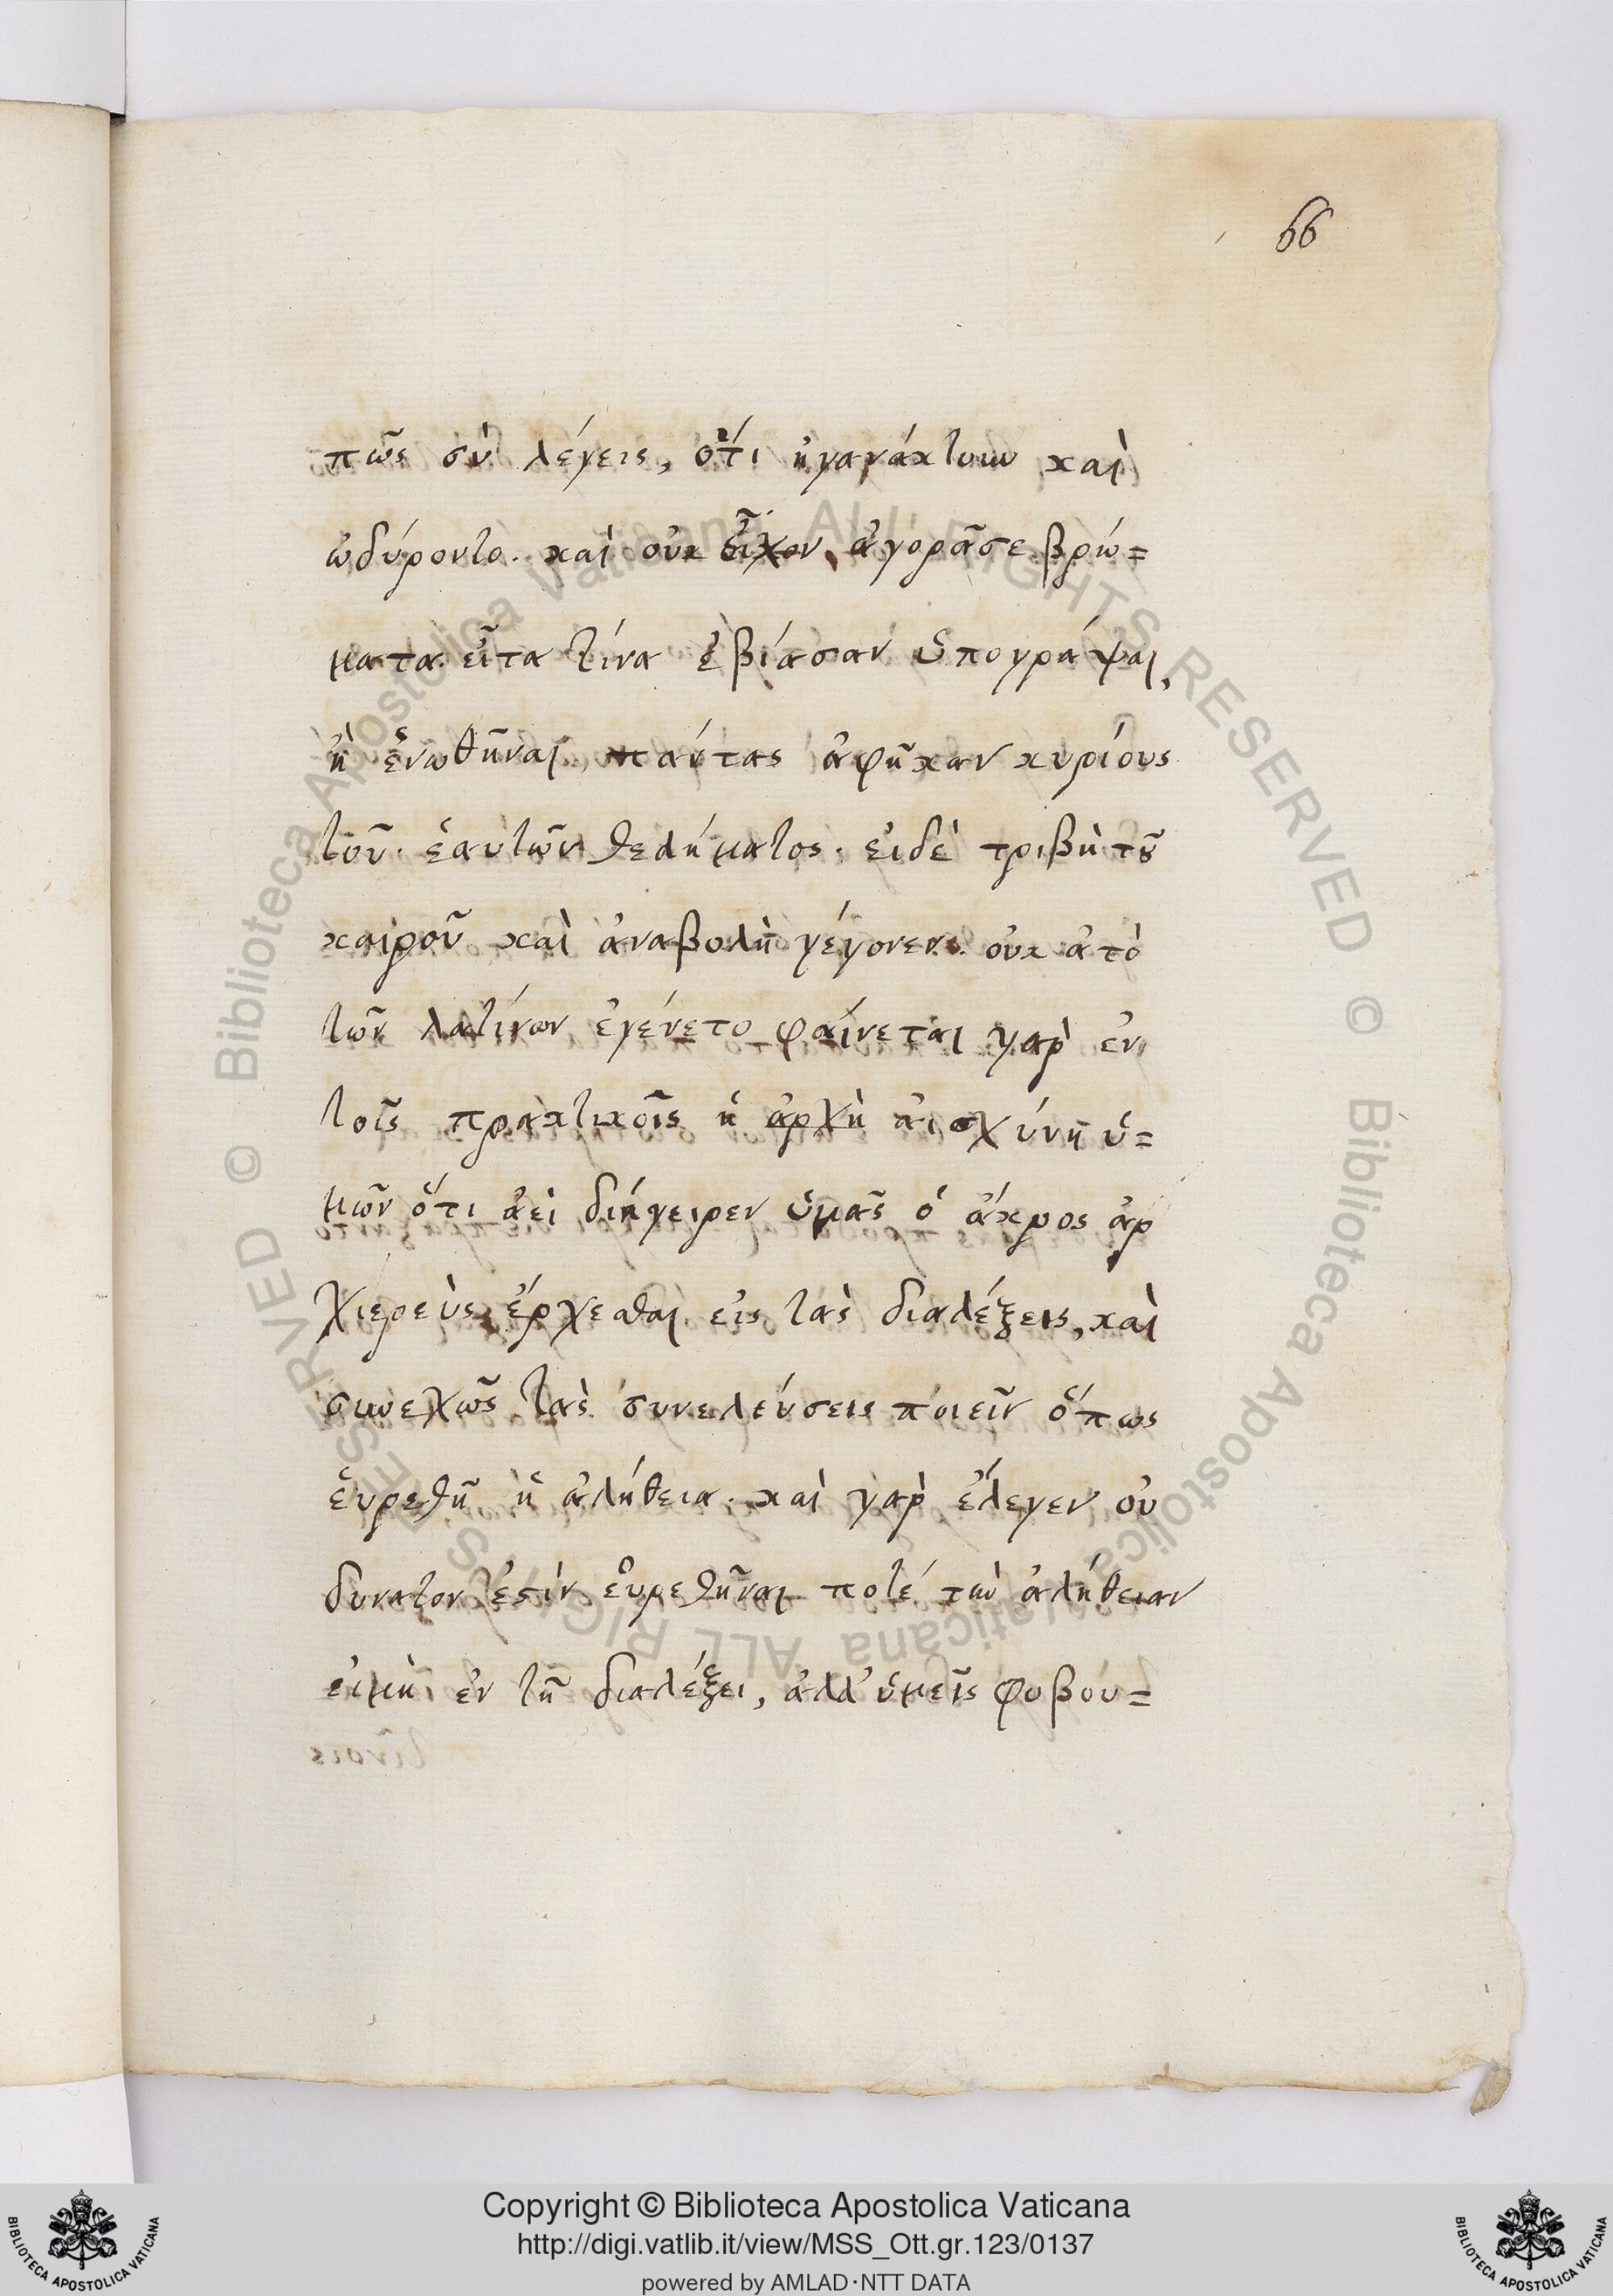 66
πῶς σὺ λέγεις, ὅτι ἠγανάκτουν καὶ
ὠδύροντο. καὶ οὐκ εἶχον ἀγορᾶσε βρώ=
ματα. εἶτα τίνα ἐβίασαν ὑπογράψαι,
ἢ ἑνωθῆναι, πάντας ἀφῆκαν κυρίους
τοῦ ἑαυτῶν θελήματος. εἰδὲ τριβὴ τοῦ
καιροῦ καὶ ἀναβολὴ γέγονεν. οὐκ ἀπὸ
τῶν λατίνων ἐγένετο φαίνεται γαρ ἐν
τοῖς πρακτικοῖς ἡ ἀρχὴ αἰσχύνη ὑ=
μῶν ὅτι ἀεὶ διήγειρεν ὑμᾶς ὁ ἄκρος ἀρ
χιερεὺς ἔρχεσθαι εἰς τὰς διαλέξεις, καὶ
συνεχῶς τὰς συνελεύσεις ποιεῖν ὅπως
εὑρεθῆ ἡ ἀλήθεια. καὶ γαρ ἔλεγεν οὐ
δυνατον ἐστίν εὑρεθῆναι ποτέ τὴν ἀλήθειαν
εἰμὴ ἐν τῆ διαλέξει, ἀλλ' ὑμεῖς φοβού=
Copyright © Biblioteca Apostolica Vaticana
http://digi.vatlib.it/view/MSS_Ott.gr.123/0137
powered by AMLAD·NTT DATA
BIBLIOTECA APOSTOLICA VATICANA
BIBLIOTECA APOSTOLICA VATICANA
© Biblioteca Apostolica Vaticana ALL RIGHTS RESERVED © Biblioteca Apostolica Vaticana ALL RIGHTS RESERVED